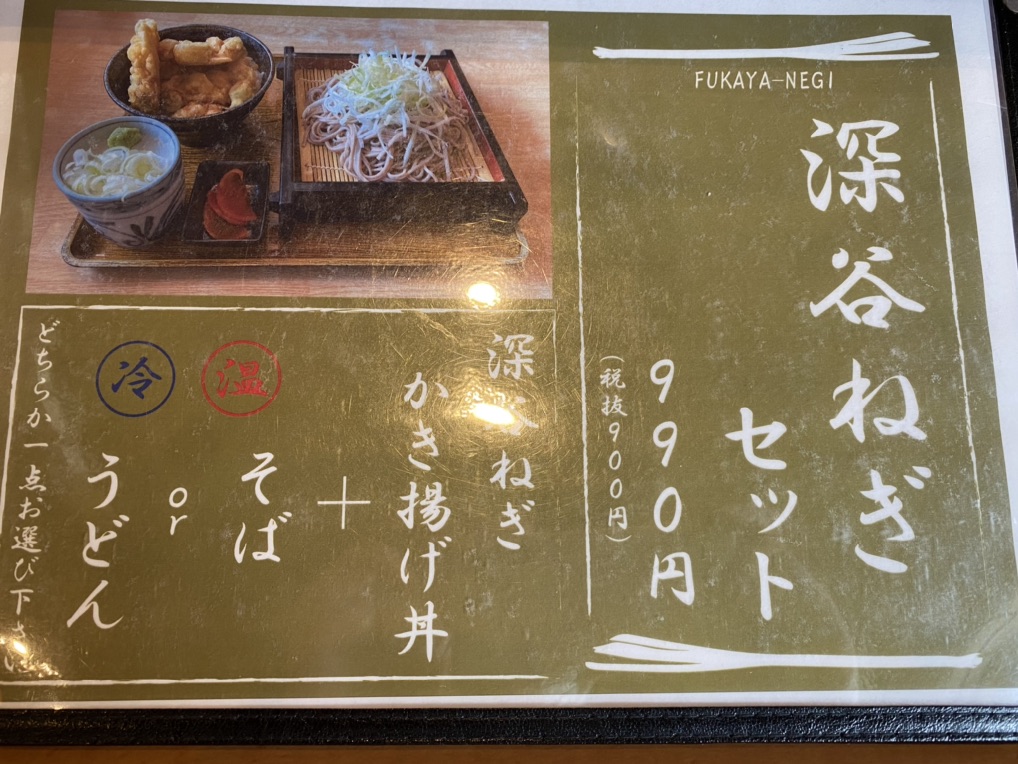 FUKAYA-NEGI
深谷ねぎ
セット
990円
(税抜900円)
深谷ねぎ
かき揚げ丼
+
温
そば
or
冷
うどん
どちらか一点お選び下さい